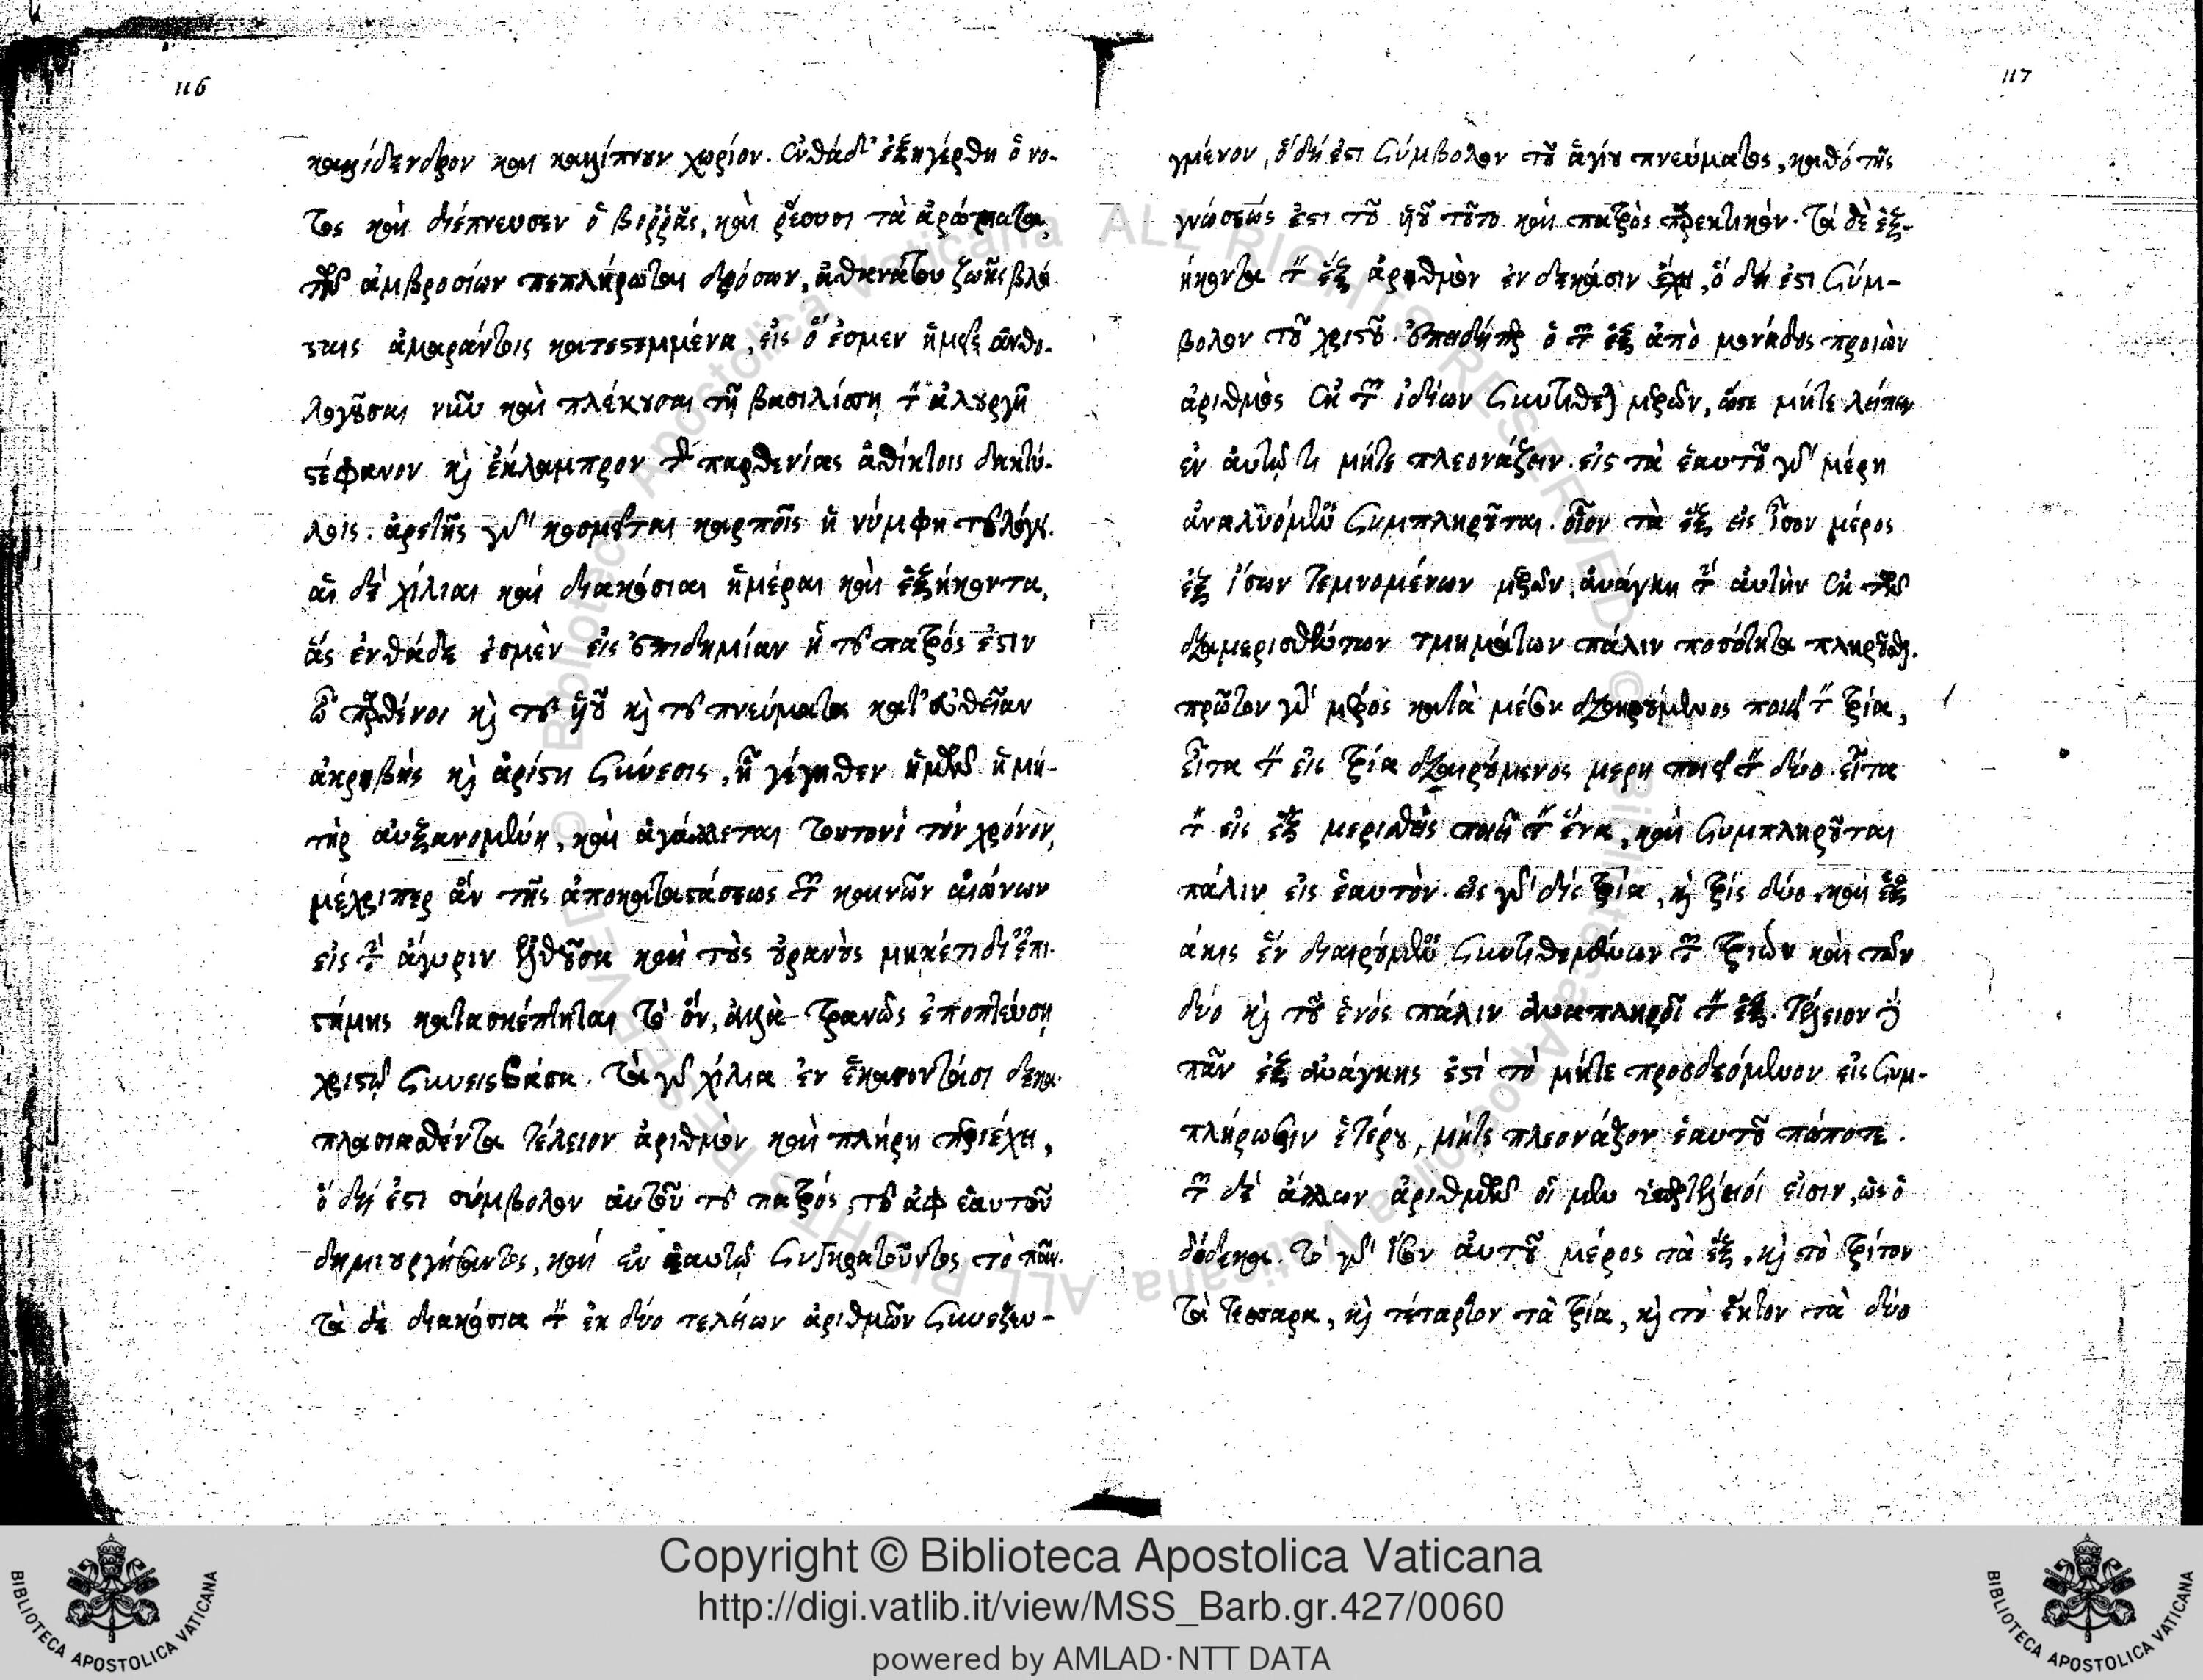 116
καλλίδενδρον καὶ καλλίπνουν χωρίον. ἐνθάδ' ἐξηγέρθη ὁ νό-
τος καὶ διέπνευσεν ὁ βορρᾶς, καὶ ῥέουσι τὰ ἀρώματα,
τῶν ἀμβροσίων πεπλήρωται δρόσων, ἀθανάτου ζωῆς βλά-
σταις ἀμαράντοις κατεστεμμένα, εἰς ὅ ἐσμεν ἡμεῖς ἀνθο-
λογοῦσαι νῦν καὶ πλέκουσαι τῇ βασιλίσσῃ τὸν ἁλουργῆ
στέφανον κὶ ἔκλαμπρον τῆς παρθενίας ἀθίκτοις δακτύ-
λοις. ἀρετῆς γὰρ κοσμεῖται καρποῖς ἡ νύμφη τοῦ λόγου.
αἱ δὲ χίλιαι καὶ διακόσιαι ἡμέραι καὶ ἑξήκοντα,
ἃς ἐνθάδε ἐσμὲν εἰς ἐπιδημίαν ἡ τοῦ πατρός ἐστιν
ὦ παρθένοι κὶ τοῦ υἱοῦ κὶ τοῦ πνεύματος κατ' εὐθεῖαν
ἀκριβὴς κὶ ἀρίστη σύνεσις, ᾗ γέγηθεν ἡμῶν ἡ μή-
τηρ αὐξανομένη, καὶ ἀγάλλεται τουτονὶ τὸν χρόνον,
μέχριπερ ἂν τῆς ἀποκαταστάσεως τῶν καινῶν αἰώνων
εἰς τὴν ἄγυριν ἐλθοῦσα καὶ τοὺς οὐρανοὺς μηκέτι δι' ἐπι-
στήμης κατασκέπτηται τὸ ὄν, ἀλλὰ τρανῶς ἐποπτεύσῃ
χριστῷ συνεισβᾶσα. τὰ γὰρ χίλια ἐν ἑκατοντάσι δεκα-
πλασιασθέντα τέλειον ἀριθμὸν καὶ πλήρη περιέχει,
ὃ δή ἐστι σύμβολον αὐτοῦ τοῦ πατρός, τοῦ ἀφ ἑαυτοῦ
δημιουργήσαντος, καὶ ἐν ἑαυτῷ συγκρατοῦντος τὸ πᾶν.
τὰ δὲ διακόσια τὸν ἐκ δύο τελείων ἀριθμῶν συνεζευ-
117
γμένον, ὃ δή ἐστι σύμβολον τοῦ ἁγίου πνεύματος, καθὸ τῆς
γνώσεώς ἐστι τοῦ υἱοῦ τοῦτο καὶ πατρὸς παρεκτικόν. τὰ δὲ ἑξ-
ήκοντα τὸν ἓξ ἀριθμὸν ἐν δεκάσιν ἔχει, ὃ δή ἐστι σύμ-
βολον τοῦ χριστοῦ. ἐπειδήπερ ὁ τῶν ἓξ ἀπὸ μονάδος προϊὼν
ἀριθμὸς ἐκ τῶν ἰδίων συντίθεται μερῶν, ὥστε μήτε λείπειν
ἐν αὐτῷ τι μήτε πλεονάζειν. εἰς τὰ ἑαυτοῦ γὰρ μέρη
ἀναλυόμενος συμπληροῦται. οἷον τὰ ἓξ εἰς ἴσον μέρος
ἐξ ἴσων τεμνομένων μερῶν, ἀνάγκη τὴν αὐτὴν ἐκ τῶν
διαμερισθέντων τμημάτων πάλιν ποσότητα πληροῦσθαι.
πρῶτον γὰρ μέρος κατὰ μέσον διαιρούμενος ποιεῖ τὸν τρία,
εἶτα τὸν εἰς τρία διαιρούμενος μέρη ποιεῖ τὸν δύο. εἶτα
τὸν εἰς ἓξ μερισθεὶς ποιεῖ τὸν ἕνα, καὶ συμπληροῦται
πάλιν εἰς ἑαυτόν. εἰς γὰρ δὶς τρία, κὶ τρὶς δύο, καὶ ἑξ
άκις ἓν διαιρούμενος συντιθεμένων τῶν τριῶν καὶ τῶν
δύο κὶ τοῦ ἑνὸς πάλιν ἀναπληροῖ τὸν ἕξ. τέλειον δὲ
πᾶν ἐξ ἀνάγκης ἐστὶ τὸ μήτε προσδεόμενον εἰς συμ-
πλήρωσιν ἑτέρου, μήτε πλεονάζον ἑαυτοῦ πώποτε.
τῶν δὲ ἄλλων ἀριθμῶν οἱ μὲν ὑπερτέλειοί εἰσιν, ὡς ὁ
δώδεκα. τὸ γὰρ ἥμισυ αὐτοῦ μέρος τὰ ἕξ, κὶ τὸ τρίτον
τὰ τέσσαρα, κὶ τέταρτον τὰ τρία, κὶ τὸ ἕκτον τὰ δύο
Copyright © Biblioteca Apostolica Vaticana
http://digi.vatlib.it/view/MSS_Barb.gr.427/0060
powered by AMLAD·NTT DATA
BIBLIOTECA APOSTOLICA VATICANA
BIBLIOTECA APOSTOLICA VATICANA